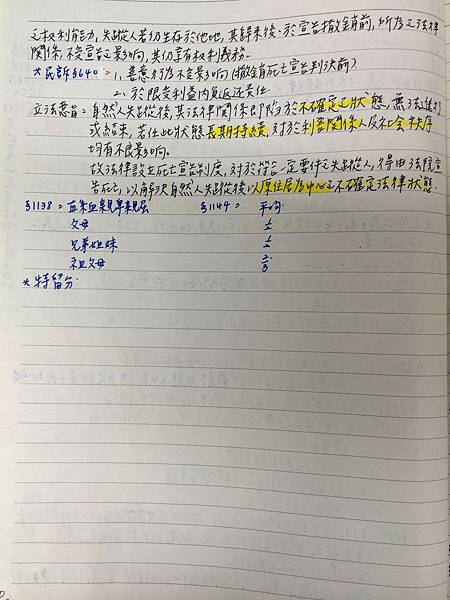 之权利能力,失踪人若仍生存於他地,其歸來後、於宣告撤銷前,所為之法律
関係,不受宣告之影响,其仍享有权利義務。
*民訴§640=1、善意行為不受影响(撤銷死亡宣告判決前)
2、於限受利益內負返还責任.
立法意旨:自然人失踪後,其法律関係即陷於不確定之狀態,無法進行
或結束,若任此狀態長期持續,對於利害関係人及社会秩序
均有不良影响。
故法律設立死亡宣告制度,對於符合一定要件之失踪人,得由法院宣
告死亡,以解決自然人失踪後以原住居為中心之不確定法律狀態.
§1138=直系血親卑親屬 §1144= 平均
父母 ½
兄弟姐妹 ½
祖父母 ⅔
*特留分.